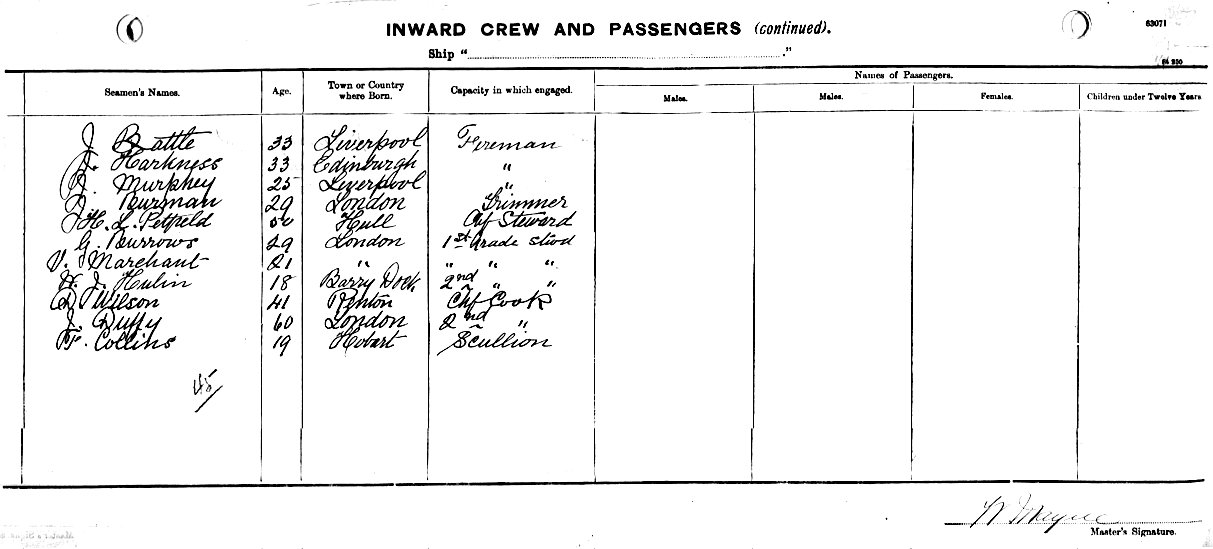 6
INWARD CREW AND PASSENGERS (continued).
63071
Ship "                ."
Seamen's Names. Age. Town or Country where Born. Capacity in which engaged. Names of Passengers.
Males. Males. Females. Children under Twelve Years
J. Battle 33 Liverpool Fireman
J. Harkness 33 Edinburgh "
R. Murphey 25 Liverpool "
J. Burman 29 London Trimmer
H. L. Petfield 50 Hull Chf Steward
G. Burrows 29 London 1st Grade Stwd
V. Marchant 21 " " " "
W. J. Hulin 18 Barry Dock 2nd " "
D. Wilson 41 Renton Chf Cook
J. Duffy 60 London 2nd "
F. Collins 19 Hobart Scullion
45
Master's Signature.